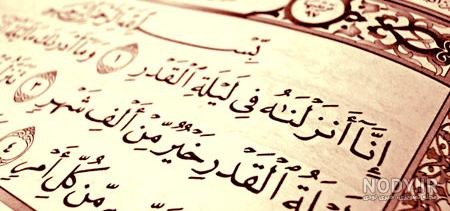 إِنَّآ أَنزَلْنَٰهُ فِي لَيْلَةِ ٱلْقَدْرِ ١ وَمَآ أَدْرَىٰكَ
ٱلْقَدْرِ خَيْرٌ مِّنْ أَلْفِ شَهْرٍ ٣
مِّن كُلِّ أَمْرٍ ٤
NODY.IR